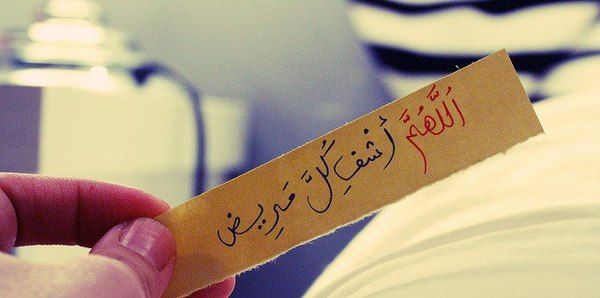 اَللَّهُمَّ أشْفِ كُلَّ مَريض